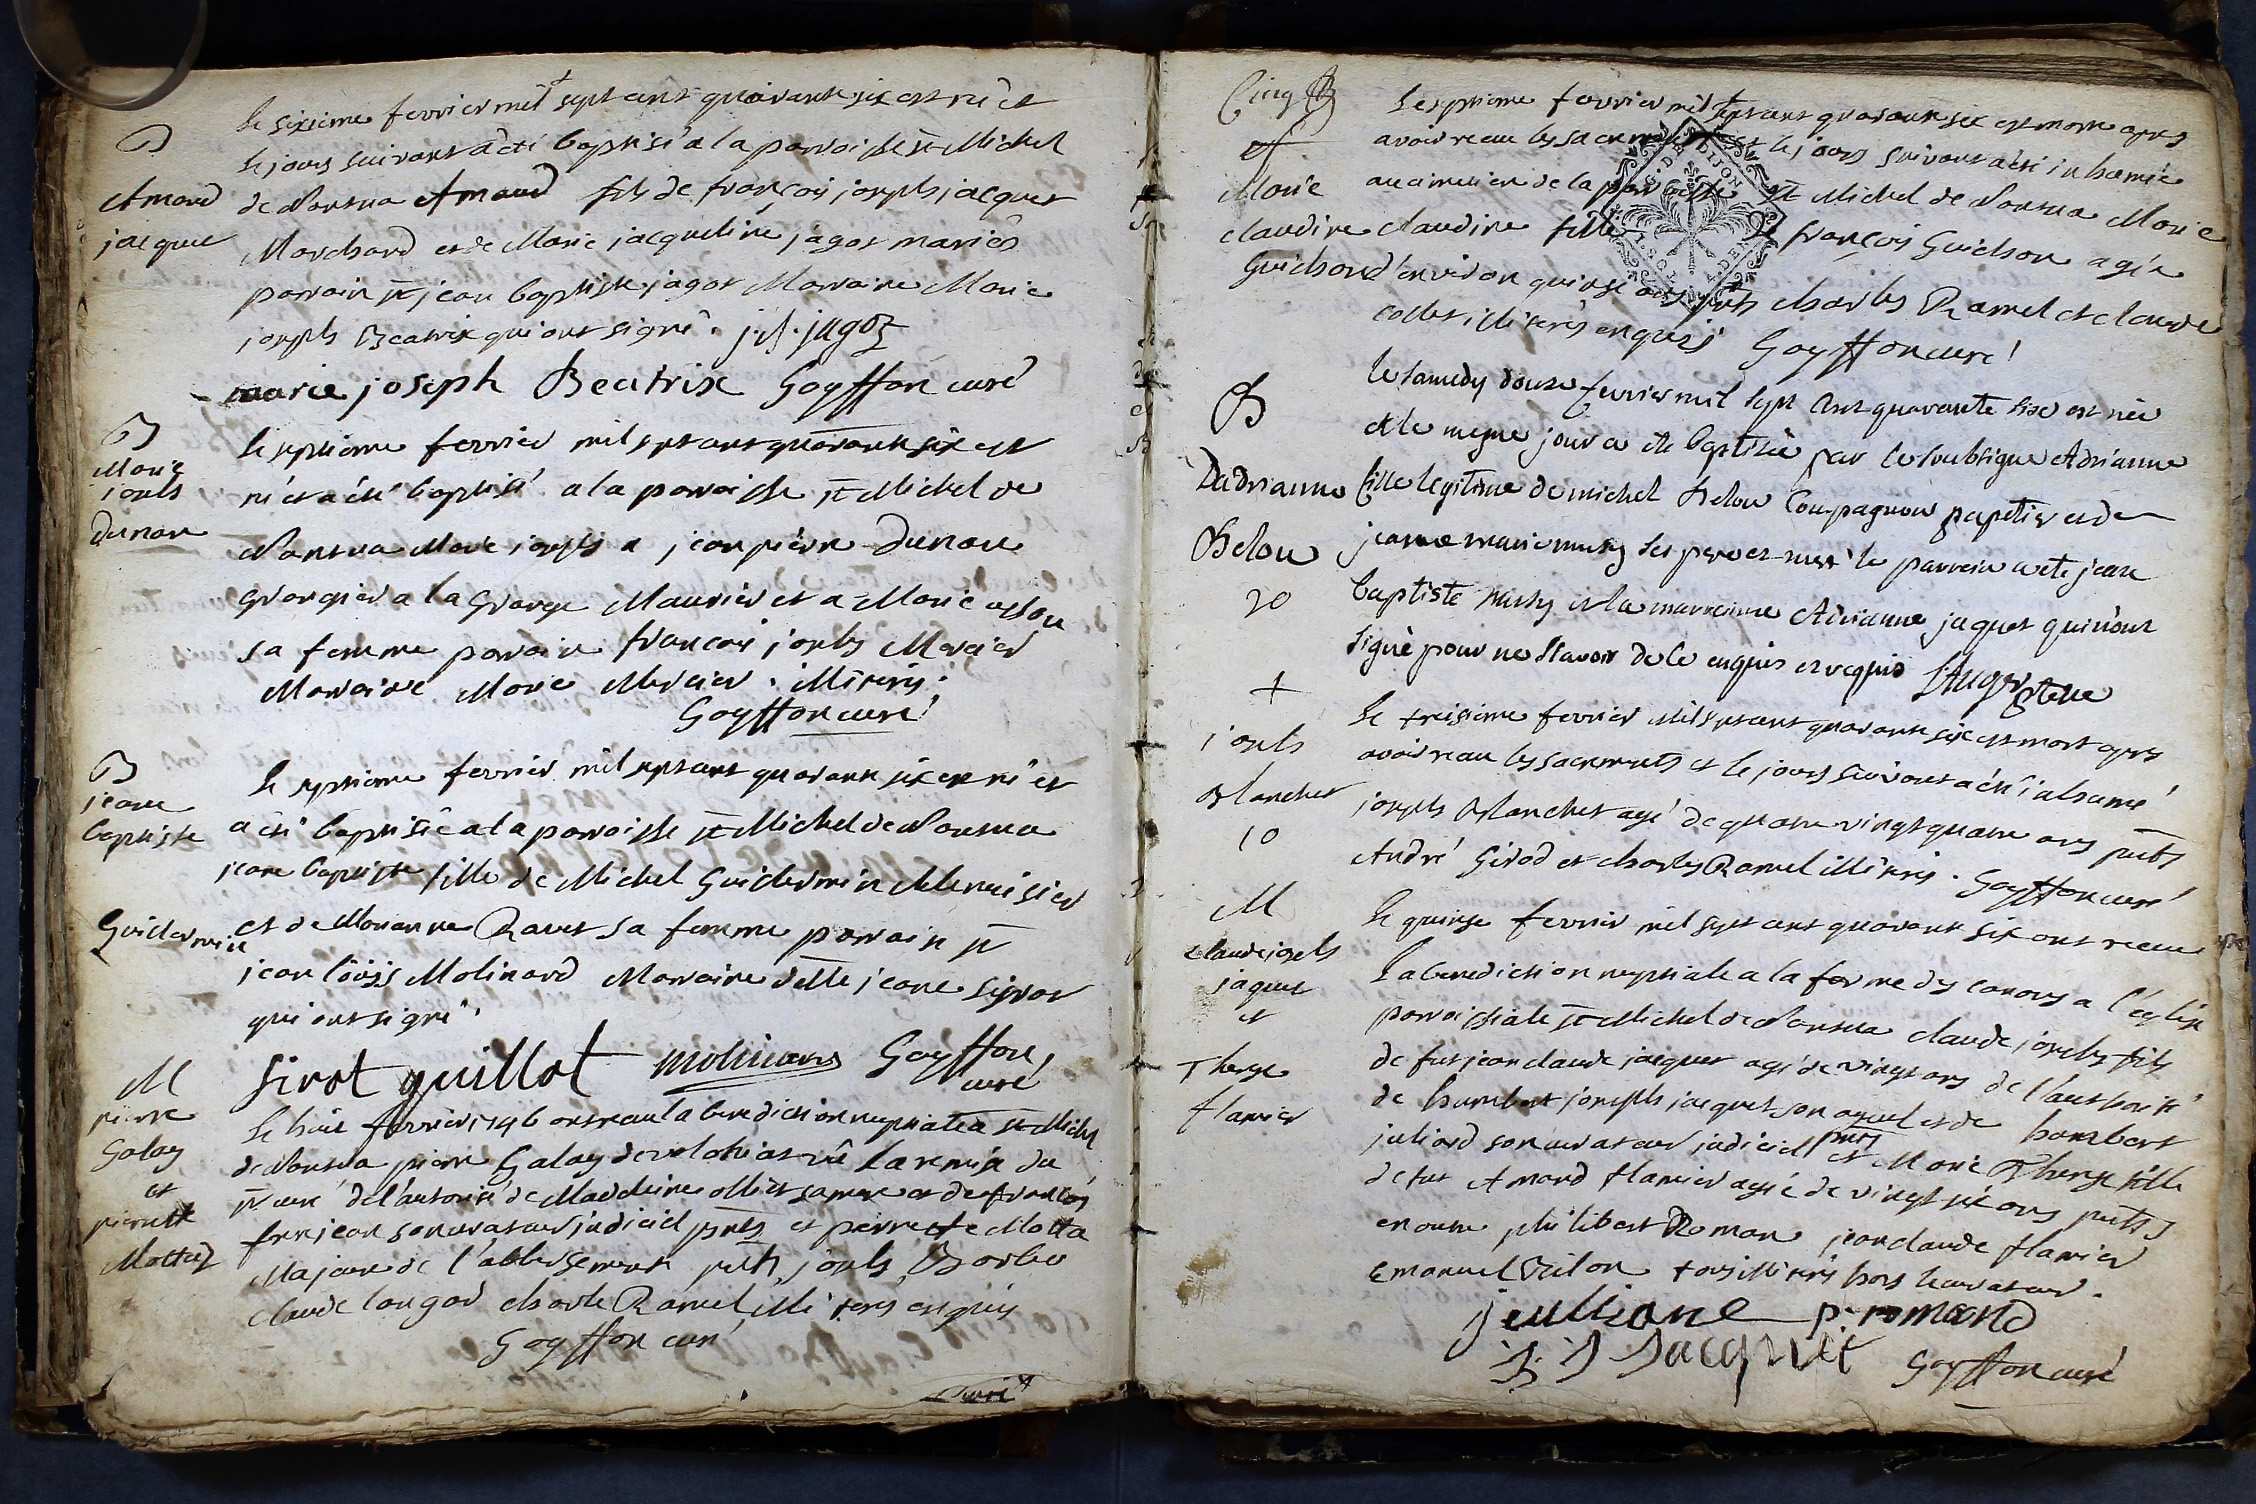 Le sixieme fevrier mil sept cent quarante six est né et
B
le jour suivant a été baptisé a la paroisse St Michel
Amard
de Nantua Amand fils de françois joseph jacquet
jacquet
Marchand et de Marie jacqueline jagot mariés
parrain Sr jean baptiste jagot Marraine Marie
joseph Beatrix qui ont signé. j. b. jagot
marie joseph Beatrix Goyffon curé
B
Marie
joseph
Dunan
Le septieme fevrier mil sept cent quarante six est
né et a été baptisé a la paroisse St Michel de
Nantua Marie joseph a jean pierre Dunan
grangier a la grange Maurier et a Marie
sa femme parrain francois joseph Mercier
Marraine Marie Mercier. illiterés.
Goyffon curé
B
jeane
baptiste
Guillermin
Le septieme fevrier mil sept cent quarante six est né et
a été baptisée a la paroisse St Michel de Nantua
jeane baptiste fille de Michel Guillermin Menuisier
et de Marianne Ravet sa femme parrain Sr
jean loüis Molinard Marraine delle jeane sirot
qui ont signé.
sirot guillot molinard Goyffon
curé
M
pierre
Galay
et
pierrette
Mottaz
Le huit fevrier 1746 ont receu la benediction nuptiale a St Michel
de Nantua pierre Galay de volohiat vû la remise du
Sr curé de l'autorité de Madeleine ollier sa mere et de françois
ferrjean son curateur judiciel pnts et perrette Motta
Majeure de l'ablessement pnts joseph Barbe
claude longod charle Ramel illiterés enquis
Goyffon curé
Cinq B
+
Marie
claudine
Guichon
Le septieme fevrier mil sept cent quarante six est morte apres
avoir receu les sacrements et le jour suivant a été inhumée
au cimetiere de la paroisse St Michel de Nantua Marie
claudine fille de françois Guichon agée
d'environ quinze ans pnts charles Ramel et claude
collet illiterés enquis Goyffon curé
B
Dadrianne
Belou
20
le samedy douze fevrier mil sept cent quarante six est née
et le meme jour a été baptisée par le soubsigné Adrianne
fille legitime de michel Belou Compagnon papetier et de
jeanne marie mussy ses pere et mere le parrein a eté jean
baptiste mussy et la marreine Adrianne jaquet qui n'ont
signé pour ne sçavoir de ce enquis et requis
+
joseph
Blanchet
10
Le treisieme fevrier mil sept cent quarante six est mort apres
avoir receu les sacrements et le jour suivant a été inhumé
joseph Blanchet agé de quatre vingt quatre ans pnts
André Girod et charles Ramel illiterés. Goyffon curé
M
claude joseph
jaquet
et
Therese
flamier
Le quinze fevrier mil sept cent quarante six ont receu
la benediction nuptiale a la forme des canons a l'église
paroissiale St Michel de Nantua claude joseph fils
de fut jean claude jacquet agé de vingt ans de l'authorité
de humbert joseph jacquet son ayeul et de humbert
juliard son curateur judiciel pnts et Marie Therese fille
de fut Amard flamier agée de vingt six ans pnts
en outre philibert Roman jean claude flamier
Emanuel Vilon tous illiterés hors le curateur.
jeulliane p. romand
j. j. jacquet Goyffon curé